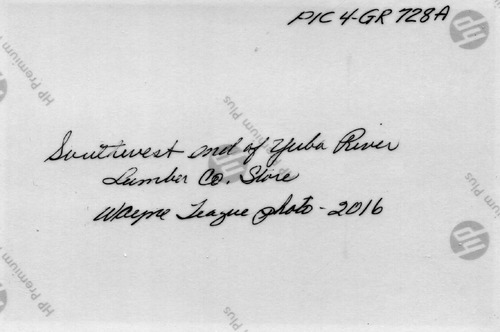 PIC 4-GR 728A
Southwest end of Yuba River
Lumber Co. Store
Wayne Teague photo - 2016
HP Premium Plus
HP Premium Plus
HP Premium Plus
HP Premium Plus